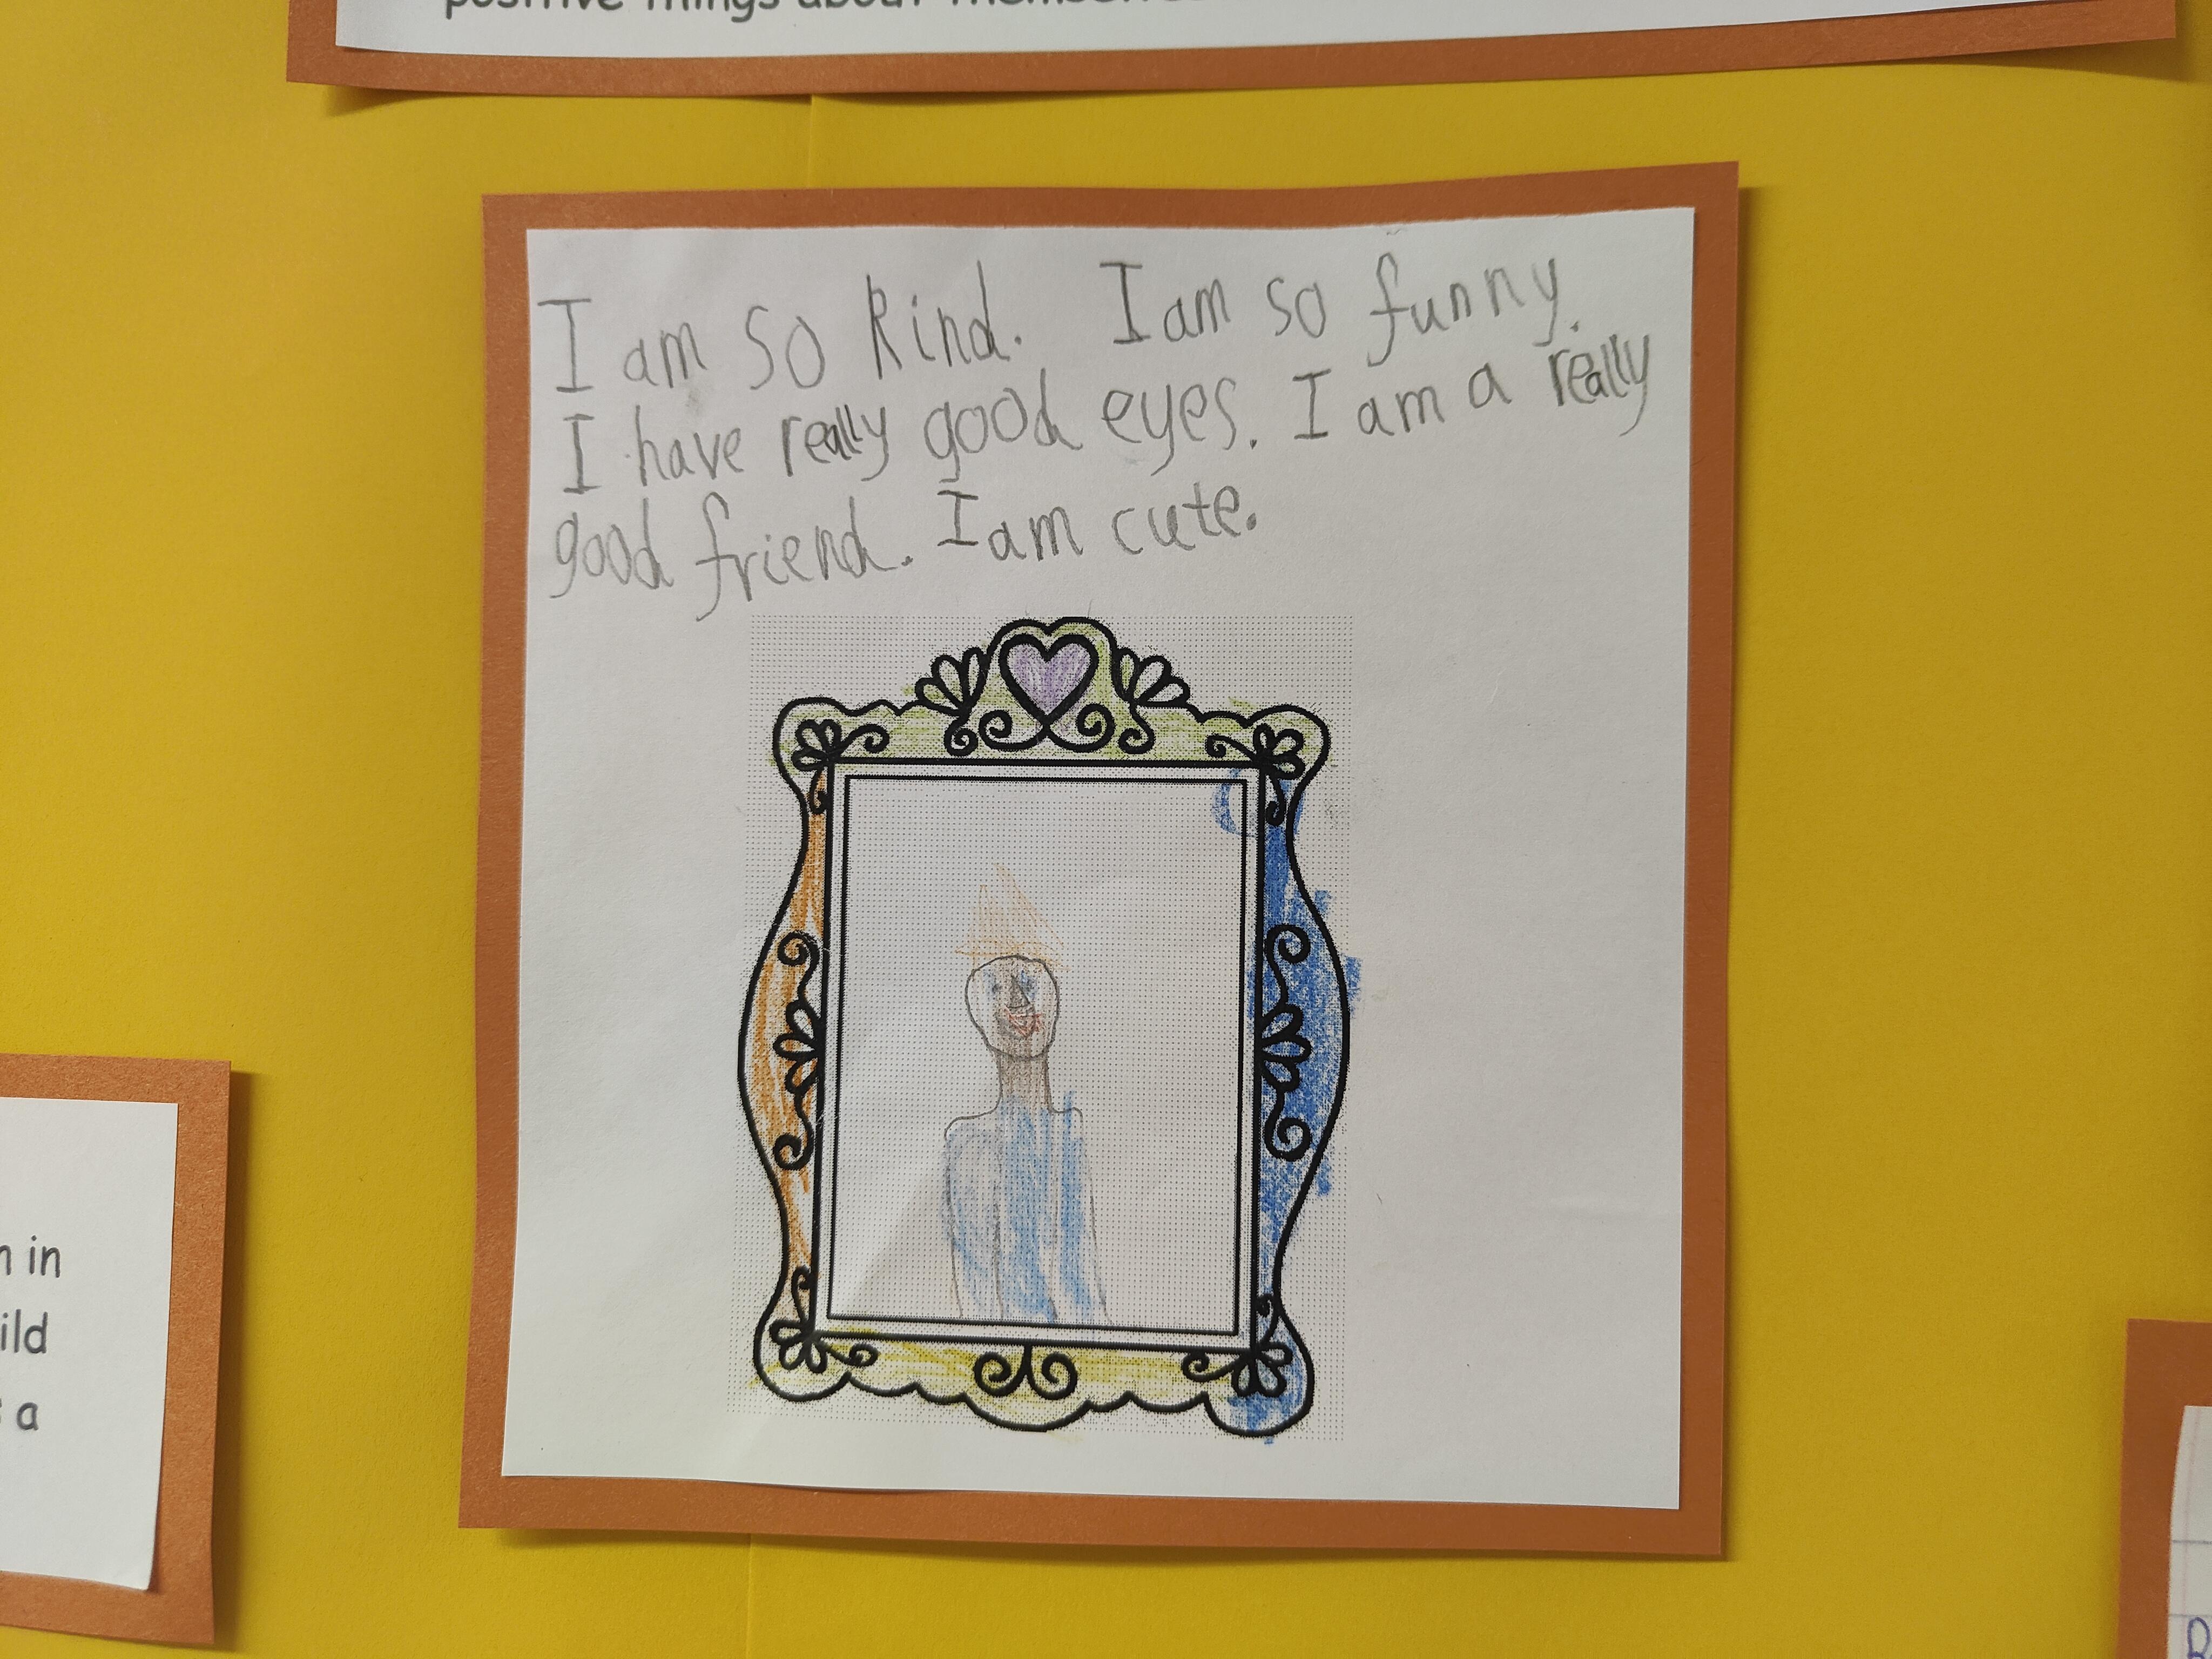 positive things about
I am so kind. I am so funny.
I have really good eyes. I am a really
good friend. I am cute.
in
a